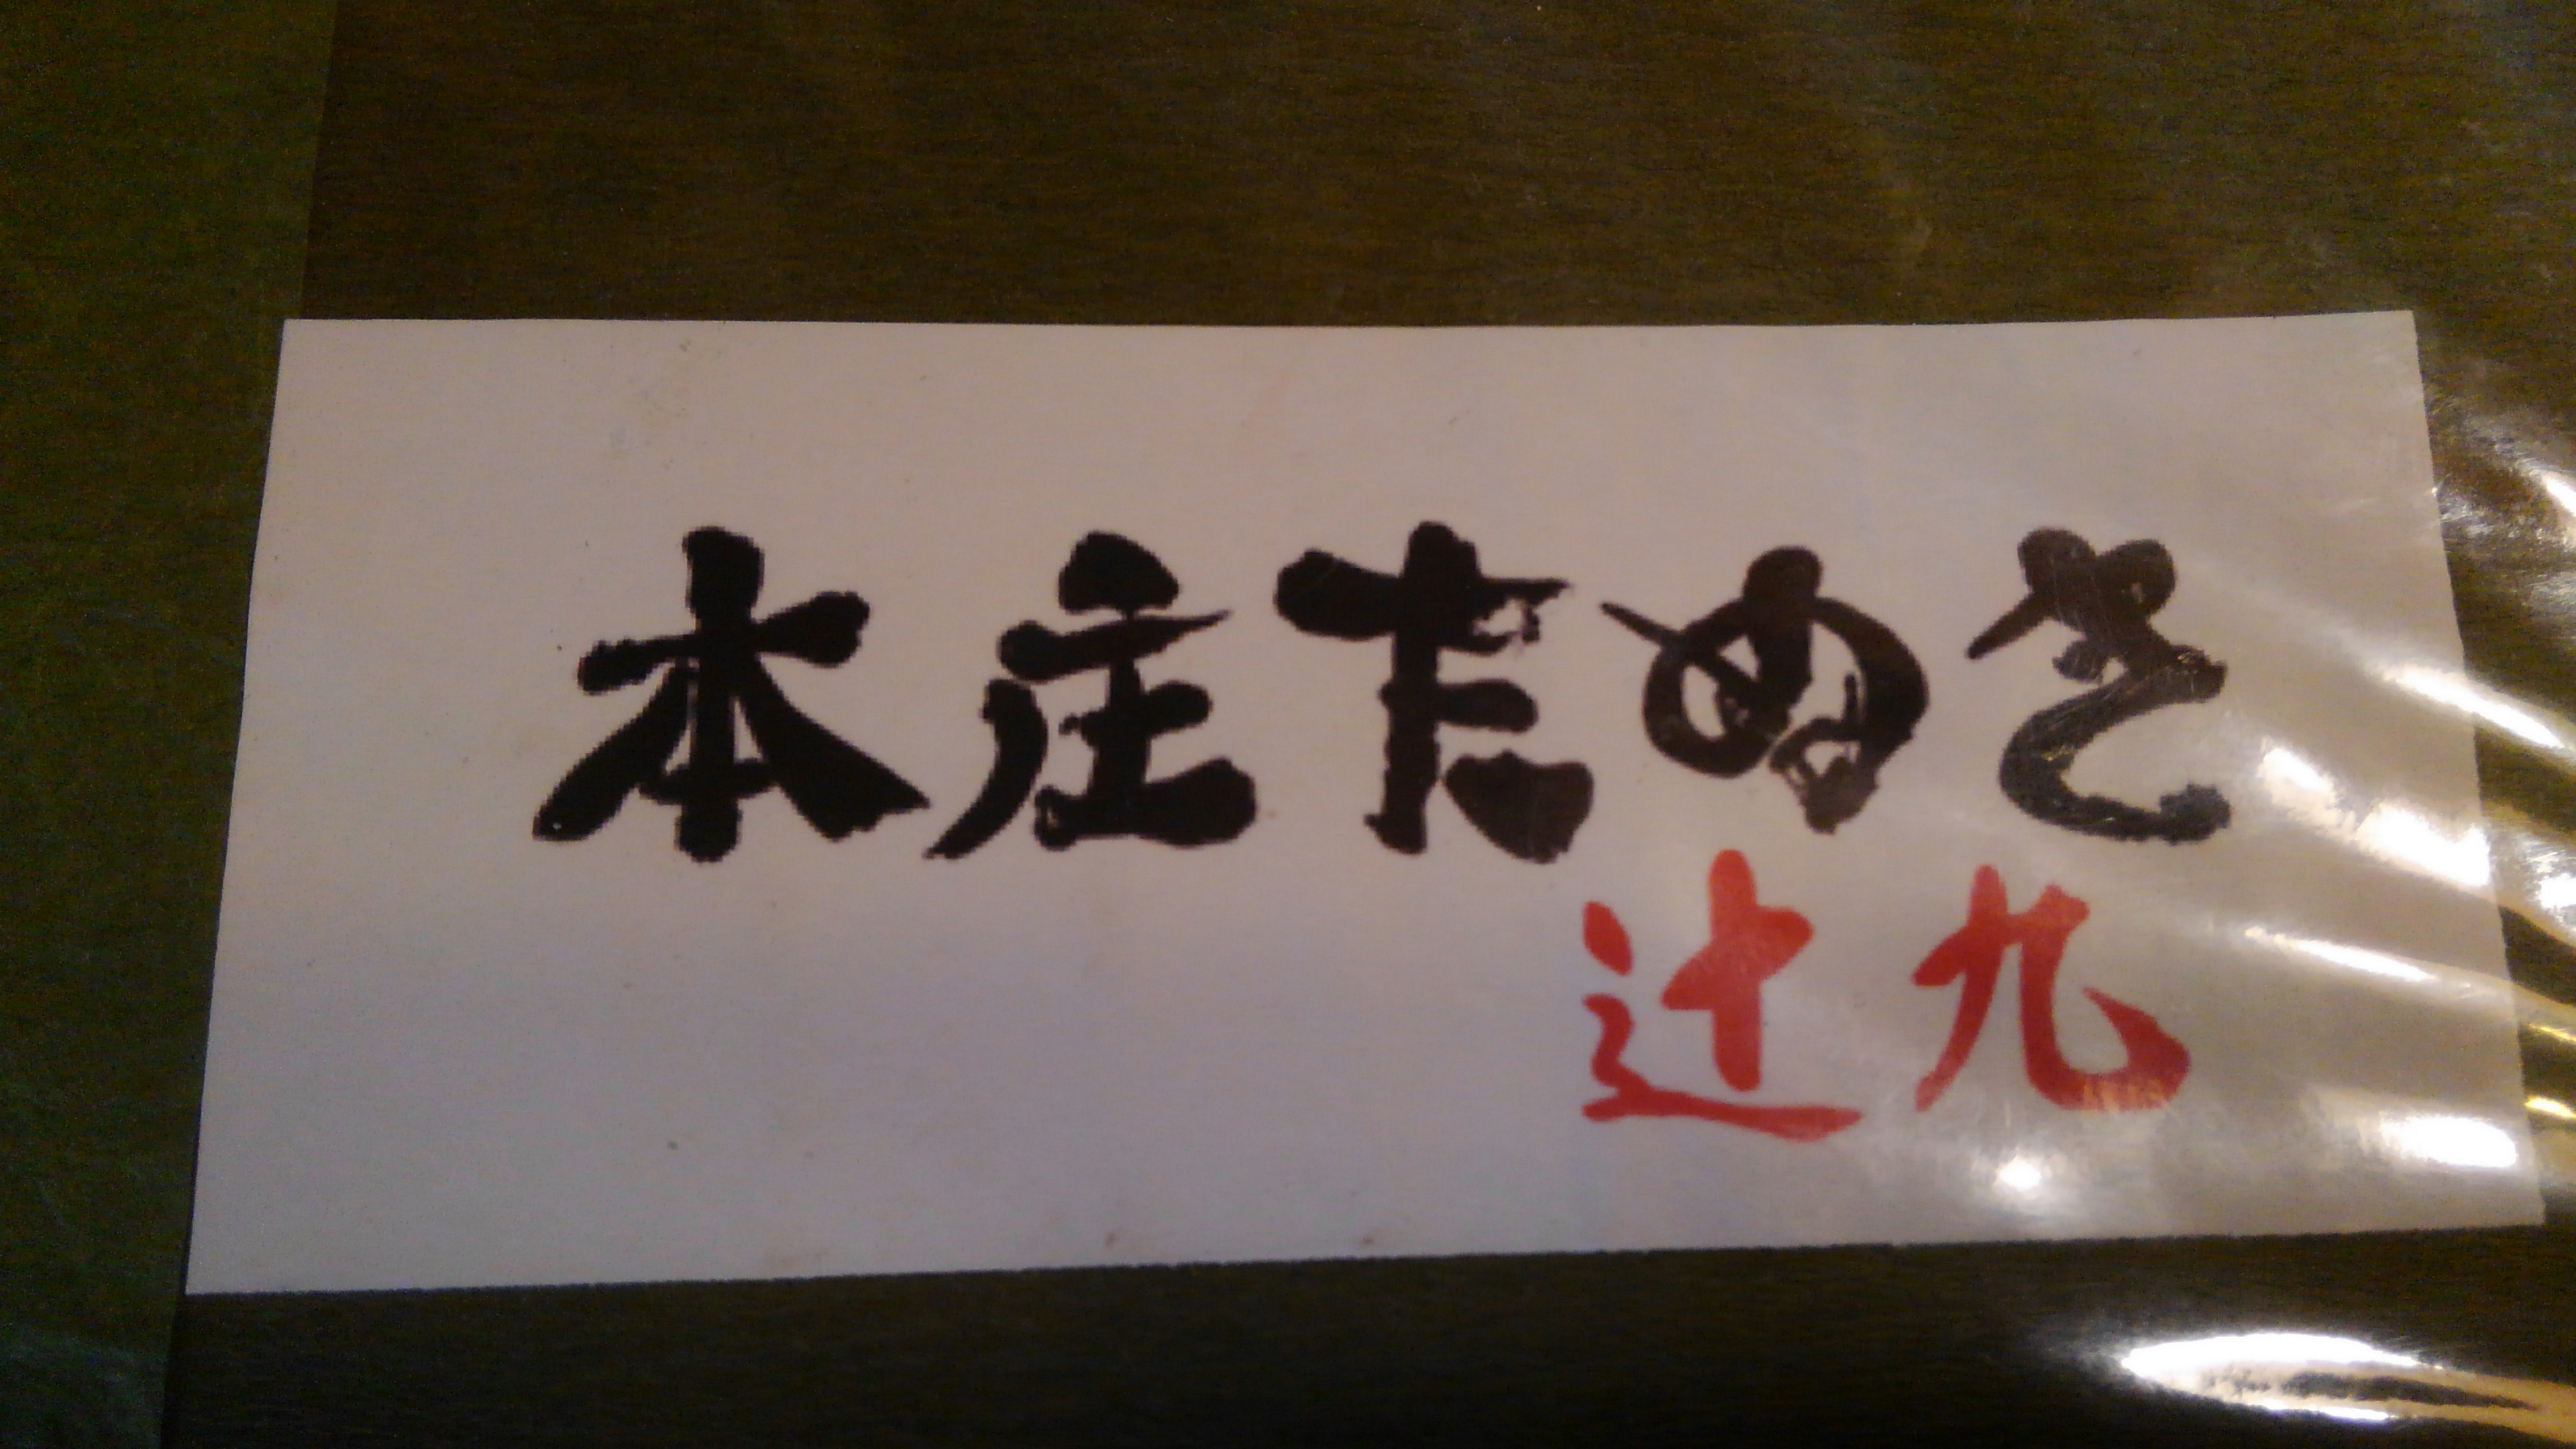 本庄たぬき
辻九